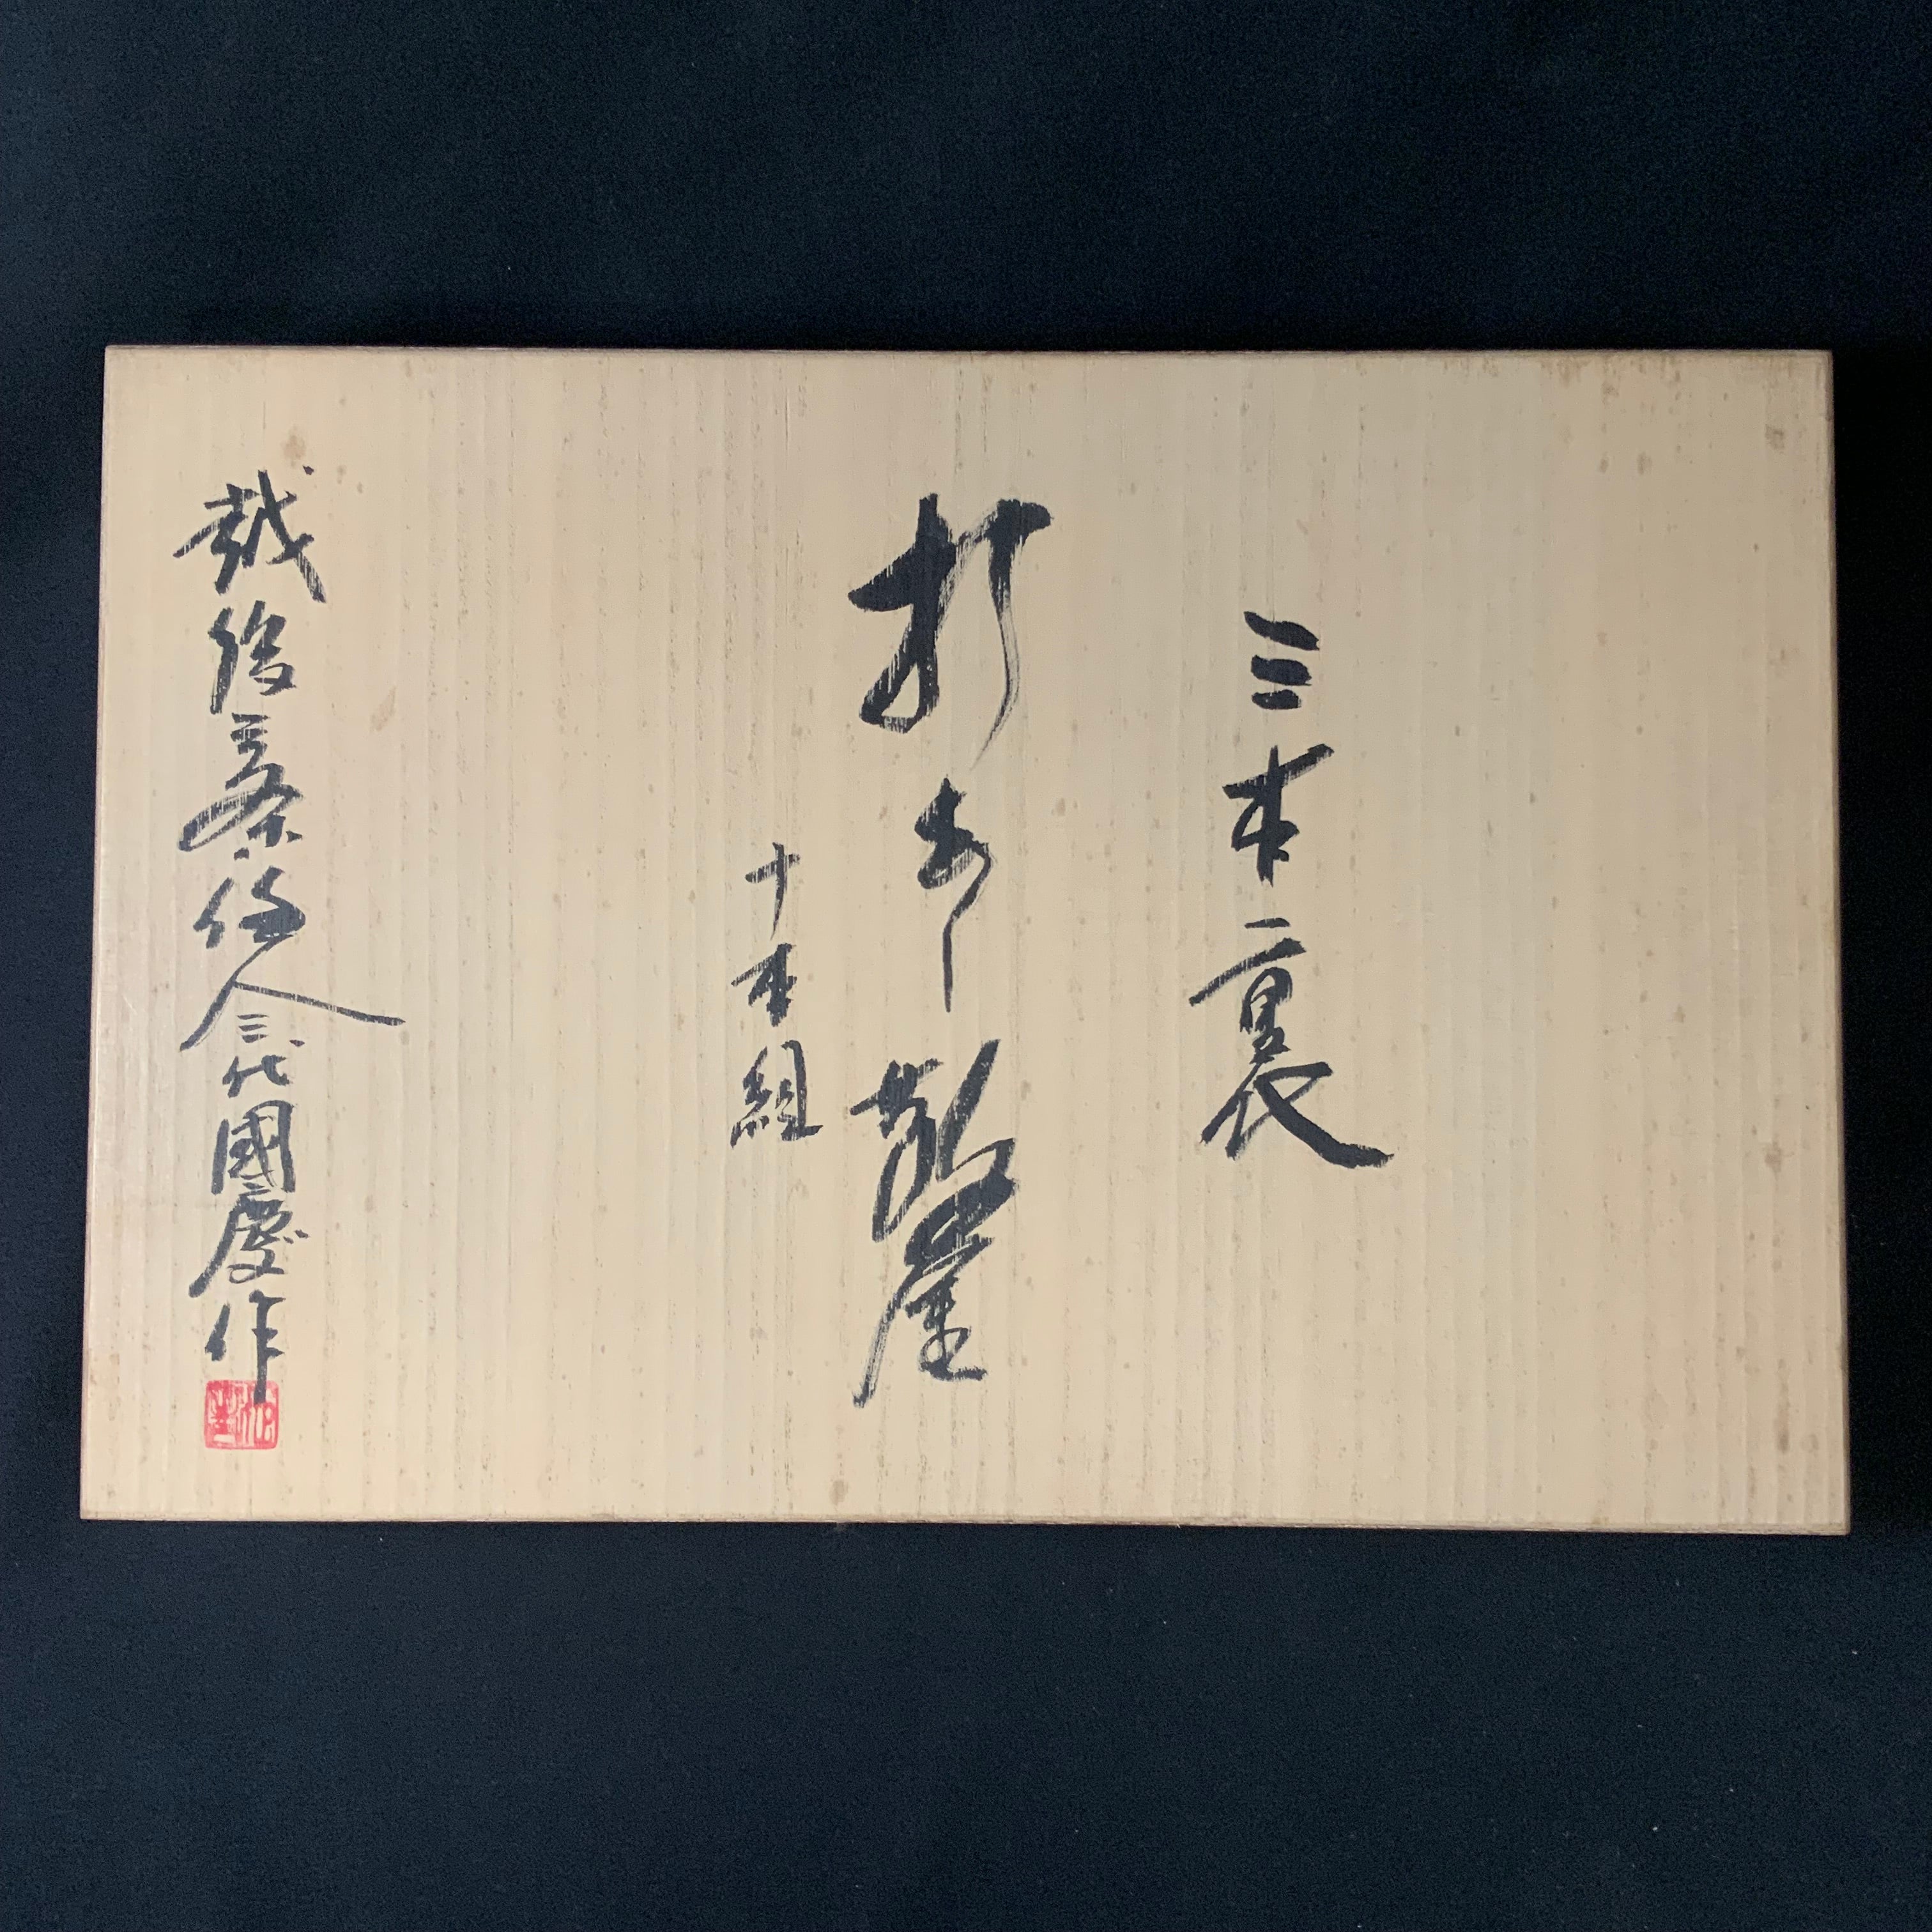 三本裏
打出し鑿
十本組
越後三条住人三代國慶作